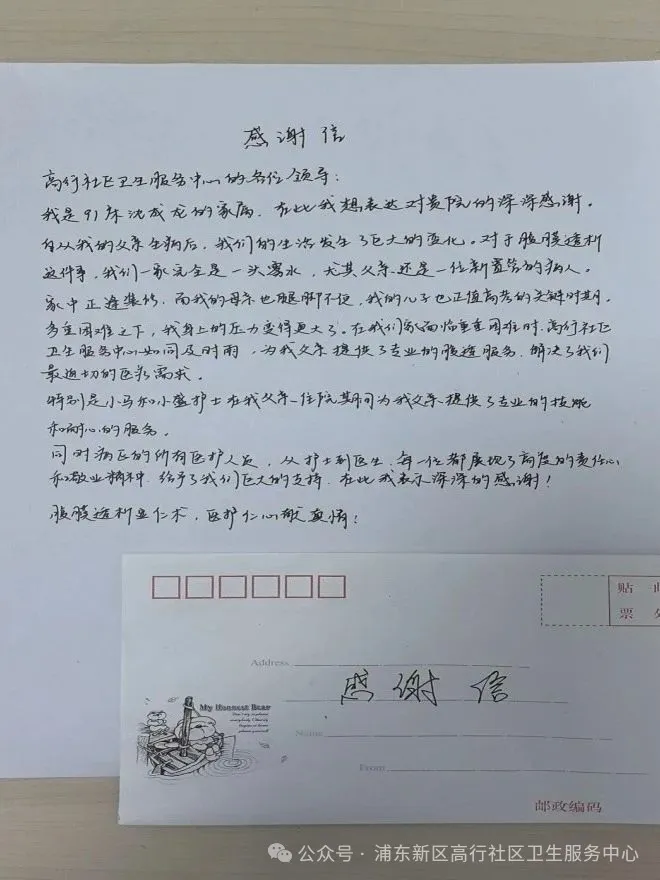 感谢信
高行社区卫生服务中心的各位领导：
我是91床沈成龙的家属，在此我想表达对贵院的深深感谢。
自从我的父亲生病后，我们的生活发生了巨大的变化。对于腹膜透析
这件事，我们一家完全是一头雾水，尤其父亲还是一位新置管的病人。
家中正逢装修，而我的母亲也腿脚不便，我的儿子也正值高考的关键时期。
多重困难之下，我身上的压力变得更大了。在我们家面临重重困难时，高行社区
卫生服务中心如同及时雨，为我父亲提供了专业的腹透服务，解决了我们
最迫切的医疗需求。
特别是小马和小盛护士在我父亲住院期间为我父亲提供了专业的技能
和耐心的服务。
同时病区的所有医护人员，从护士到医生，每一位都展现了高度的责任心
和敬业精神，给予了我们巨大的支持，在此我表示深深的感谢！
腹膜透析显仁术，医护仁心献真情！
贴 邮
票 处
Address
感谢信
My Honnest Bear
Name
From
邮政编码
公众号·浦东新区高行社区卫生服务中心